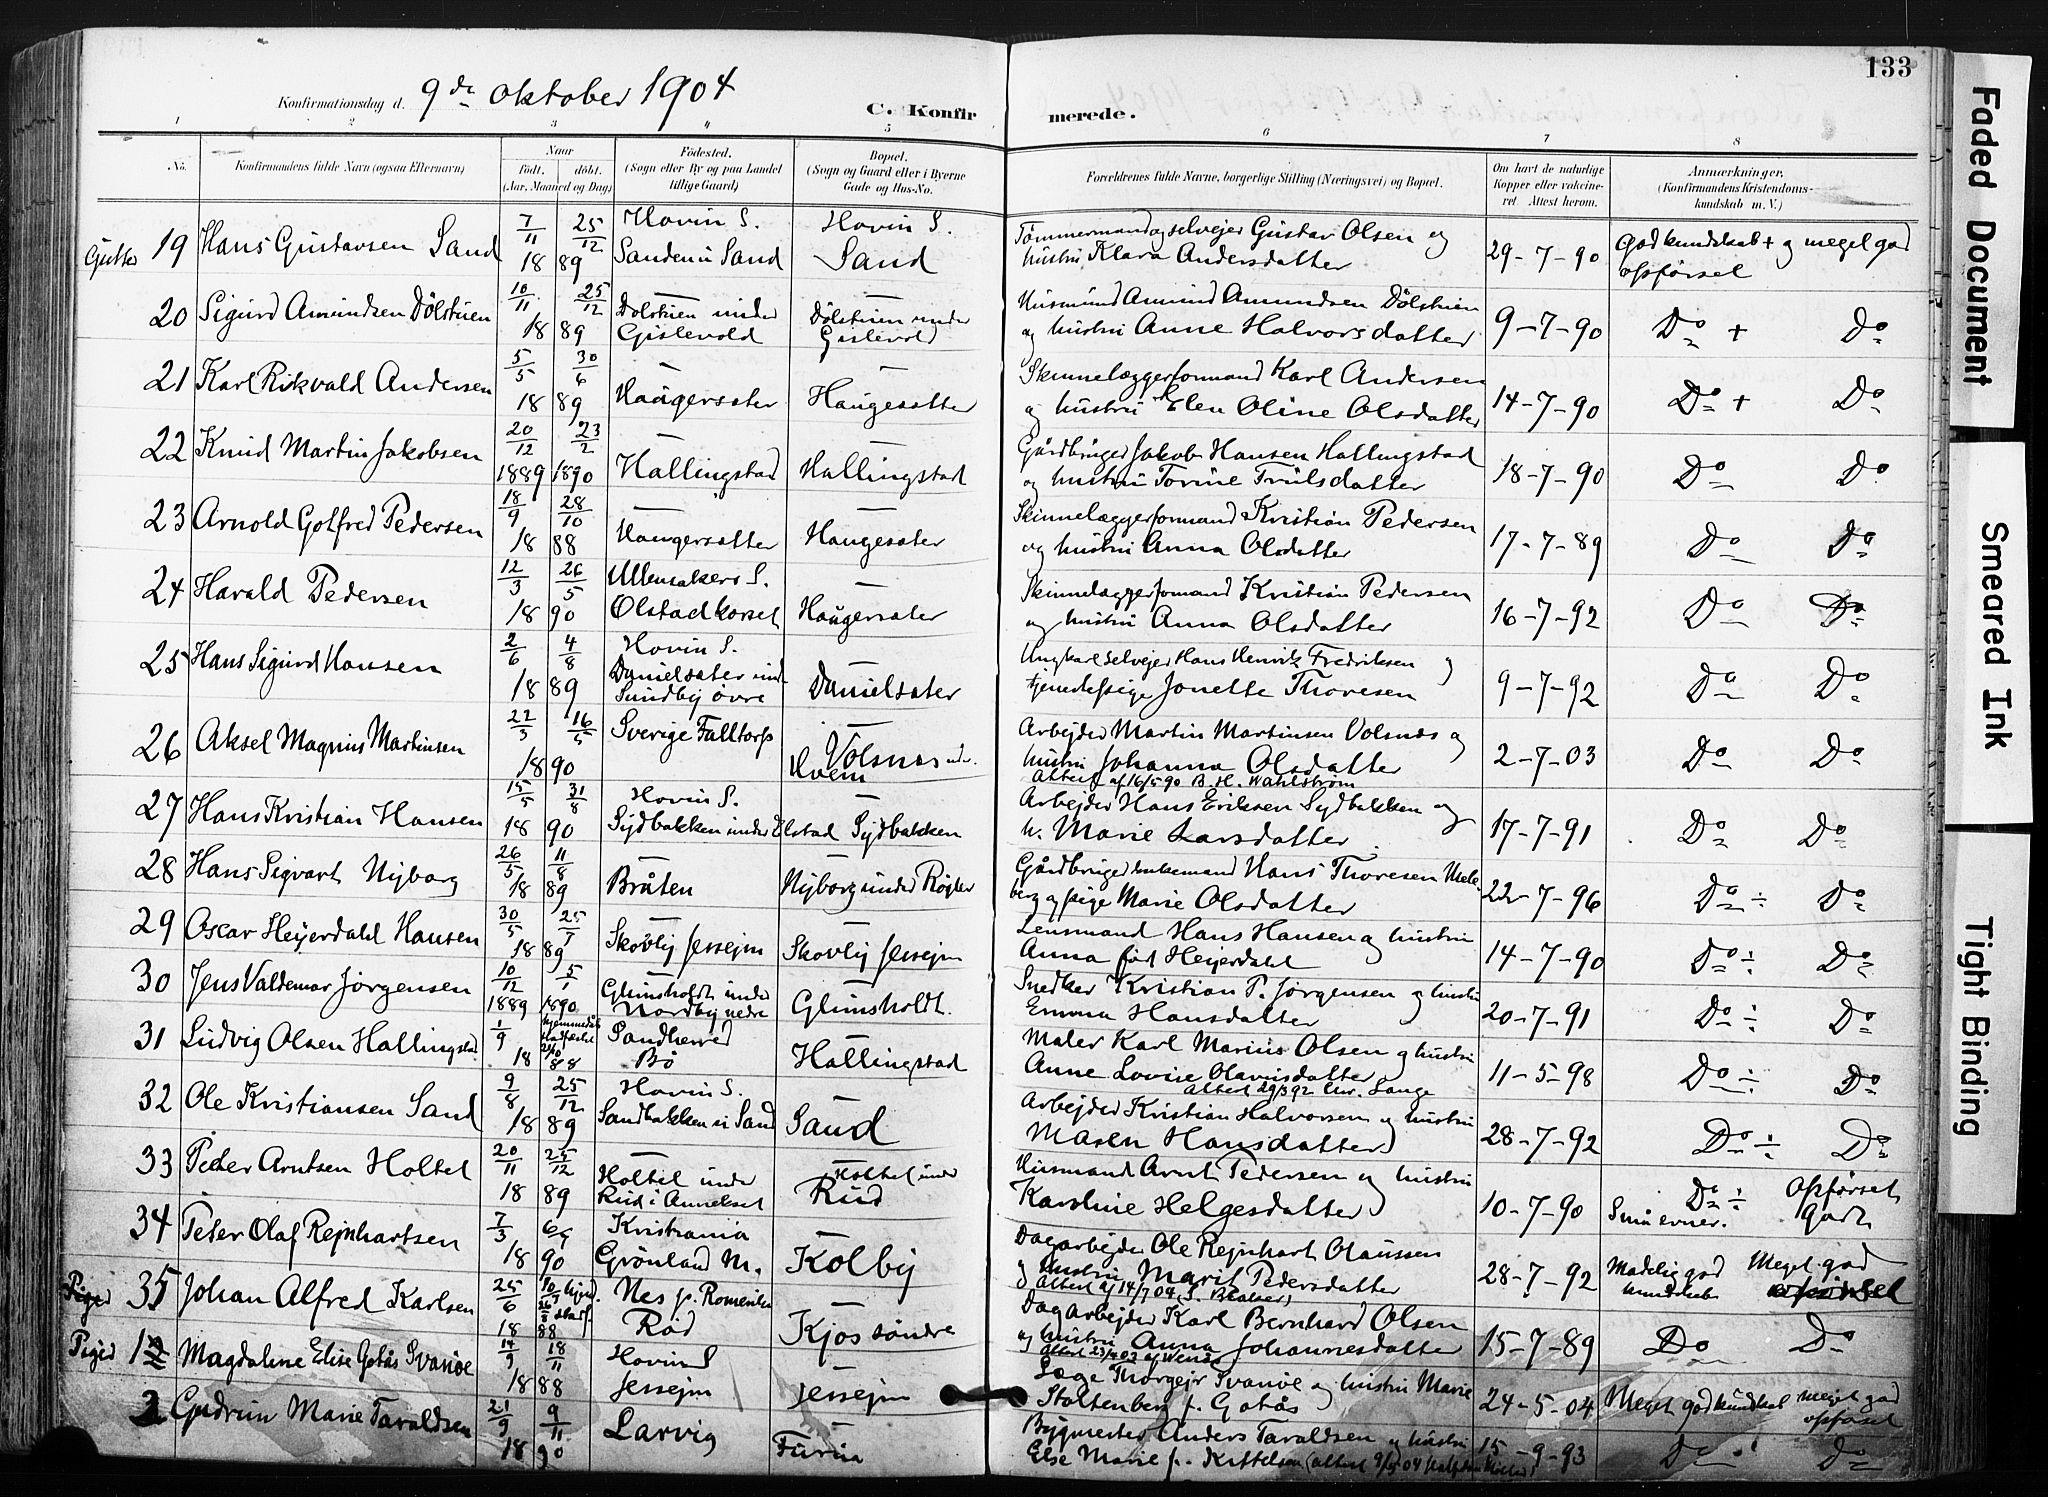 133
Konfirmationsdag d. 9de oktober 1904
C. Konfirmerede.
1 2 3 4 5 6 7 8
No. Konfirmandens fulde Navn (ogsaa Efternavn) Naar født. døbt. (Aar, Maaned og Dag) Fødested. (Sogn eller By og paa Landet tillige Gaard) Bopæl. (Sogn og Gaard eller i Byerne Gade og Hus-No.) Forældrenes fulde Navne, borgerlige Stilling (Næringsvei) og Bopæl. Om havt de naturlige Kopper eller vaccineret. Attest herom. Anmærkninger, (Konfirmandens Kristendomskundskab m. V.)
Gutter 19 Hans Gustavsen Sand 7/11 25/12 1889 Hovin S. Sanden u Sand Hovin S. Sand Tømmermand og selvejer Gustav Olsen og hustru Klara Andersdatter 29-7-90 God kundskab + og meget god opførsel
20 Sigurd Amundsen Dölstuen 10/11 25/12 1889 Dölstuen under Gislevold Dölstuen under Gislevold Husmand Amund Amundsen Dölstuen og hustru Anne Halvorsdatter 9-7-90 Do + Do
21 Karl Rikvald Andersen 5/5 30/6 1889 Haugersæter Haugesæter Skinnelæggerformand Karl Andersen og hustru Elen Oline Olsdatter 14-7-90 Do + Do
22 Knud Martin Jakobsen 20/12 1889 23/2 1890 Hallingstad Hallingstad Gårdbruger Jakob Hansen Hallingstad og hustru Torine Trulsdatter 18-7-90 Do Do
23 Arnold Gotfred Pedersen 18/9 28/10 1888 Haugersætter Haugesæter Skinnelæggerformand Kristian Pedersen og hustru Anna Olsdatter 17-7-89 Do Do
24 Harald Pedersen 12/3 26/5 1890 Ullensakers S. Olstadkorset Haugersæter Skinnelæggerformand Kristian Pedersen og hustru Anna Olsdatter 16-7-92 Do Do
25 Hans Sigurd Hansen 2/6 4/8 1889 Hovin S. Danielsæter und. Sundby övre Danielsæter Ungkarl selvejer Hans Henrik Fredriksen og tjenestepige Jonette Thoresen 9-7-92 Do Do
26 Aksel Magnus Martinsen 22/3 16/5 1890 Sverige Falltorp Volsnas under Hvem Arbejder Martin Martinsen Volsnæs og hustru Johanna Olsdatter Attest af 16/5 90 B. H. Wahlström 2-7-03 Do Do
27 Hans Kristian Hansen 15/5 31/8 1890 Hovin S. Sydbakken under Elstad Sydbakken Arbejder Hans Eriksen Sydbakken og h. Marie Larsdatter 17-7-91 Do Do
28 Hans Sigvart Nyborg 26/5 11/8 1889 Bråten Nyborg under Røgler Gårdbruger enkemand Hans Thoresen Mele-berg og pige Marie Olsdatter 22-7-96 Do ÷ Do
29 Oscar Heyerdahl Hansen 30/5 1889 Skovly Jessejm Skovly Jessejm Lensmand Hans Hansen og hustru Anna född Heyerdahl 14-7-90 Do ÷ Do
30 Jens Valdemar Jørgensen 10/12 1889 5/1 1890 Glimsholdt under Nordby nedre Glimsholdt. Snedker Kristian P. Jørgensen og hustru Emma Hansdatter 20-7-91 Do ÷ Do
31 Ludvig Olsen Hallingstad 1/9 hjemmedøbt stadfæstet 1888 Sandherred Bö Hallingstad Maler Karl Marius Olsen og hustru Anne Lovise Olavusdatter Attest 29/3 92 Chr. Lange 11-5-98 Do ÷ Do
32 Ole Kristiansen Sand 9/8 25/12 1889 Hovin S. Sandbakken u Sand Sand Arbejder Kristian Halvorsen og hustru Maren Hansdatter 28-7-92 Do ÷ Do
33 Peder Arntsen Holtet 20/11 25/12 1889 Holtet under Rud i Annekset Holtet under Rud Husmand Arnt Pedersen og hustru Karoline Helgesdatter 10-7-90 Do ÷ Små evner. Opførsel Godt
34 Peder Olaf Rejnhartsen 7/3 1890 Kristiania Grönland M. Kolby Dagarbejder Ole Rejnhart Olaussen og hustru Marit Pedersdatter 28-7-92 Madelig god kundskab Meget god opførsel
35 Johan Alfred Karlsen 25/6 1888 Nes p. Romerike Röd Kjos söndre Dagarbejder Karl Bernhard Olsen og hustru Anna Johannesdatter 15-7-89 Do Do
Piger 1 Magdalene Elise Gotås Svanöe 14/9 18/11 1888 Hovin S Jessejm Jessejm Læge Thorgejr Svanöe og hustru Marie Stoltenberg f. Gotås 24-5-04 Meget god kundskab meget god opførsel
2 Gudrun Marie Taraldsen 21/9 9/11 1890 Larvig Furua Bygmester Anders Taraldsen og hustru Else Marie f. Kittelsen 15-9-93 Do Do
Faded Document
Smeared Ink
Tight Binding